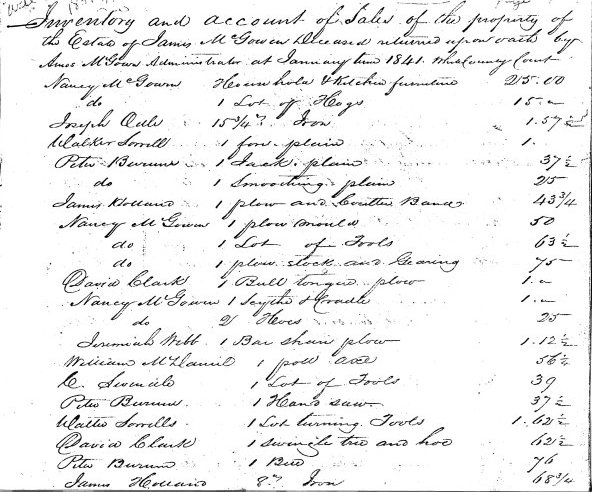 Inventory and account of Sales of the property of
the Estate of James McGowen Deceased returned upon oath by
Amos McGown Administrator at January term 1841. White County Court
Nancy McGown Household & Kitchin furniture 25.00
do 1 Lot of Hogs 15. "
Joseph 15 3/4 Iron 1.57 1/2
Walker Sorrell 1 fore plain 1.
Peter Burum 1 Jack plain 37 1/2
do 1 Smoothing plain 25
James Holland 1 plow and Coulter Band 43 3/4
Nancy McGown 1 plow mould 50
do 1 Lot of Tools 63 1/2
do 1 plow stock and Gearing 75
David Clark 1 Bull tongue plow 1. "
Nancy McGown 1 Scythe & Cradle 1. "
do 2 Hoes 25
Jeremiah Webb 1 Bar shair plow 1.12 1/2
William McDaniel 1 poll axe 56 1/2
C. 1 Lot of Tools 39
Peter Burum 1 Hand saw 37 1/2
Walter Sorrells 1 Lot turning Tools 1.62 1/2
David Clark 1 swingle tree and hoe 62 1/2
Peter Burum 1 76
James Holland 8 Iron 68 3/4